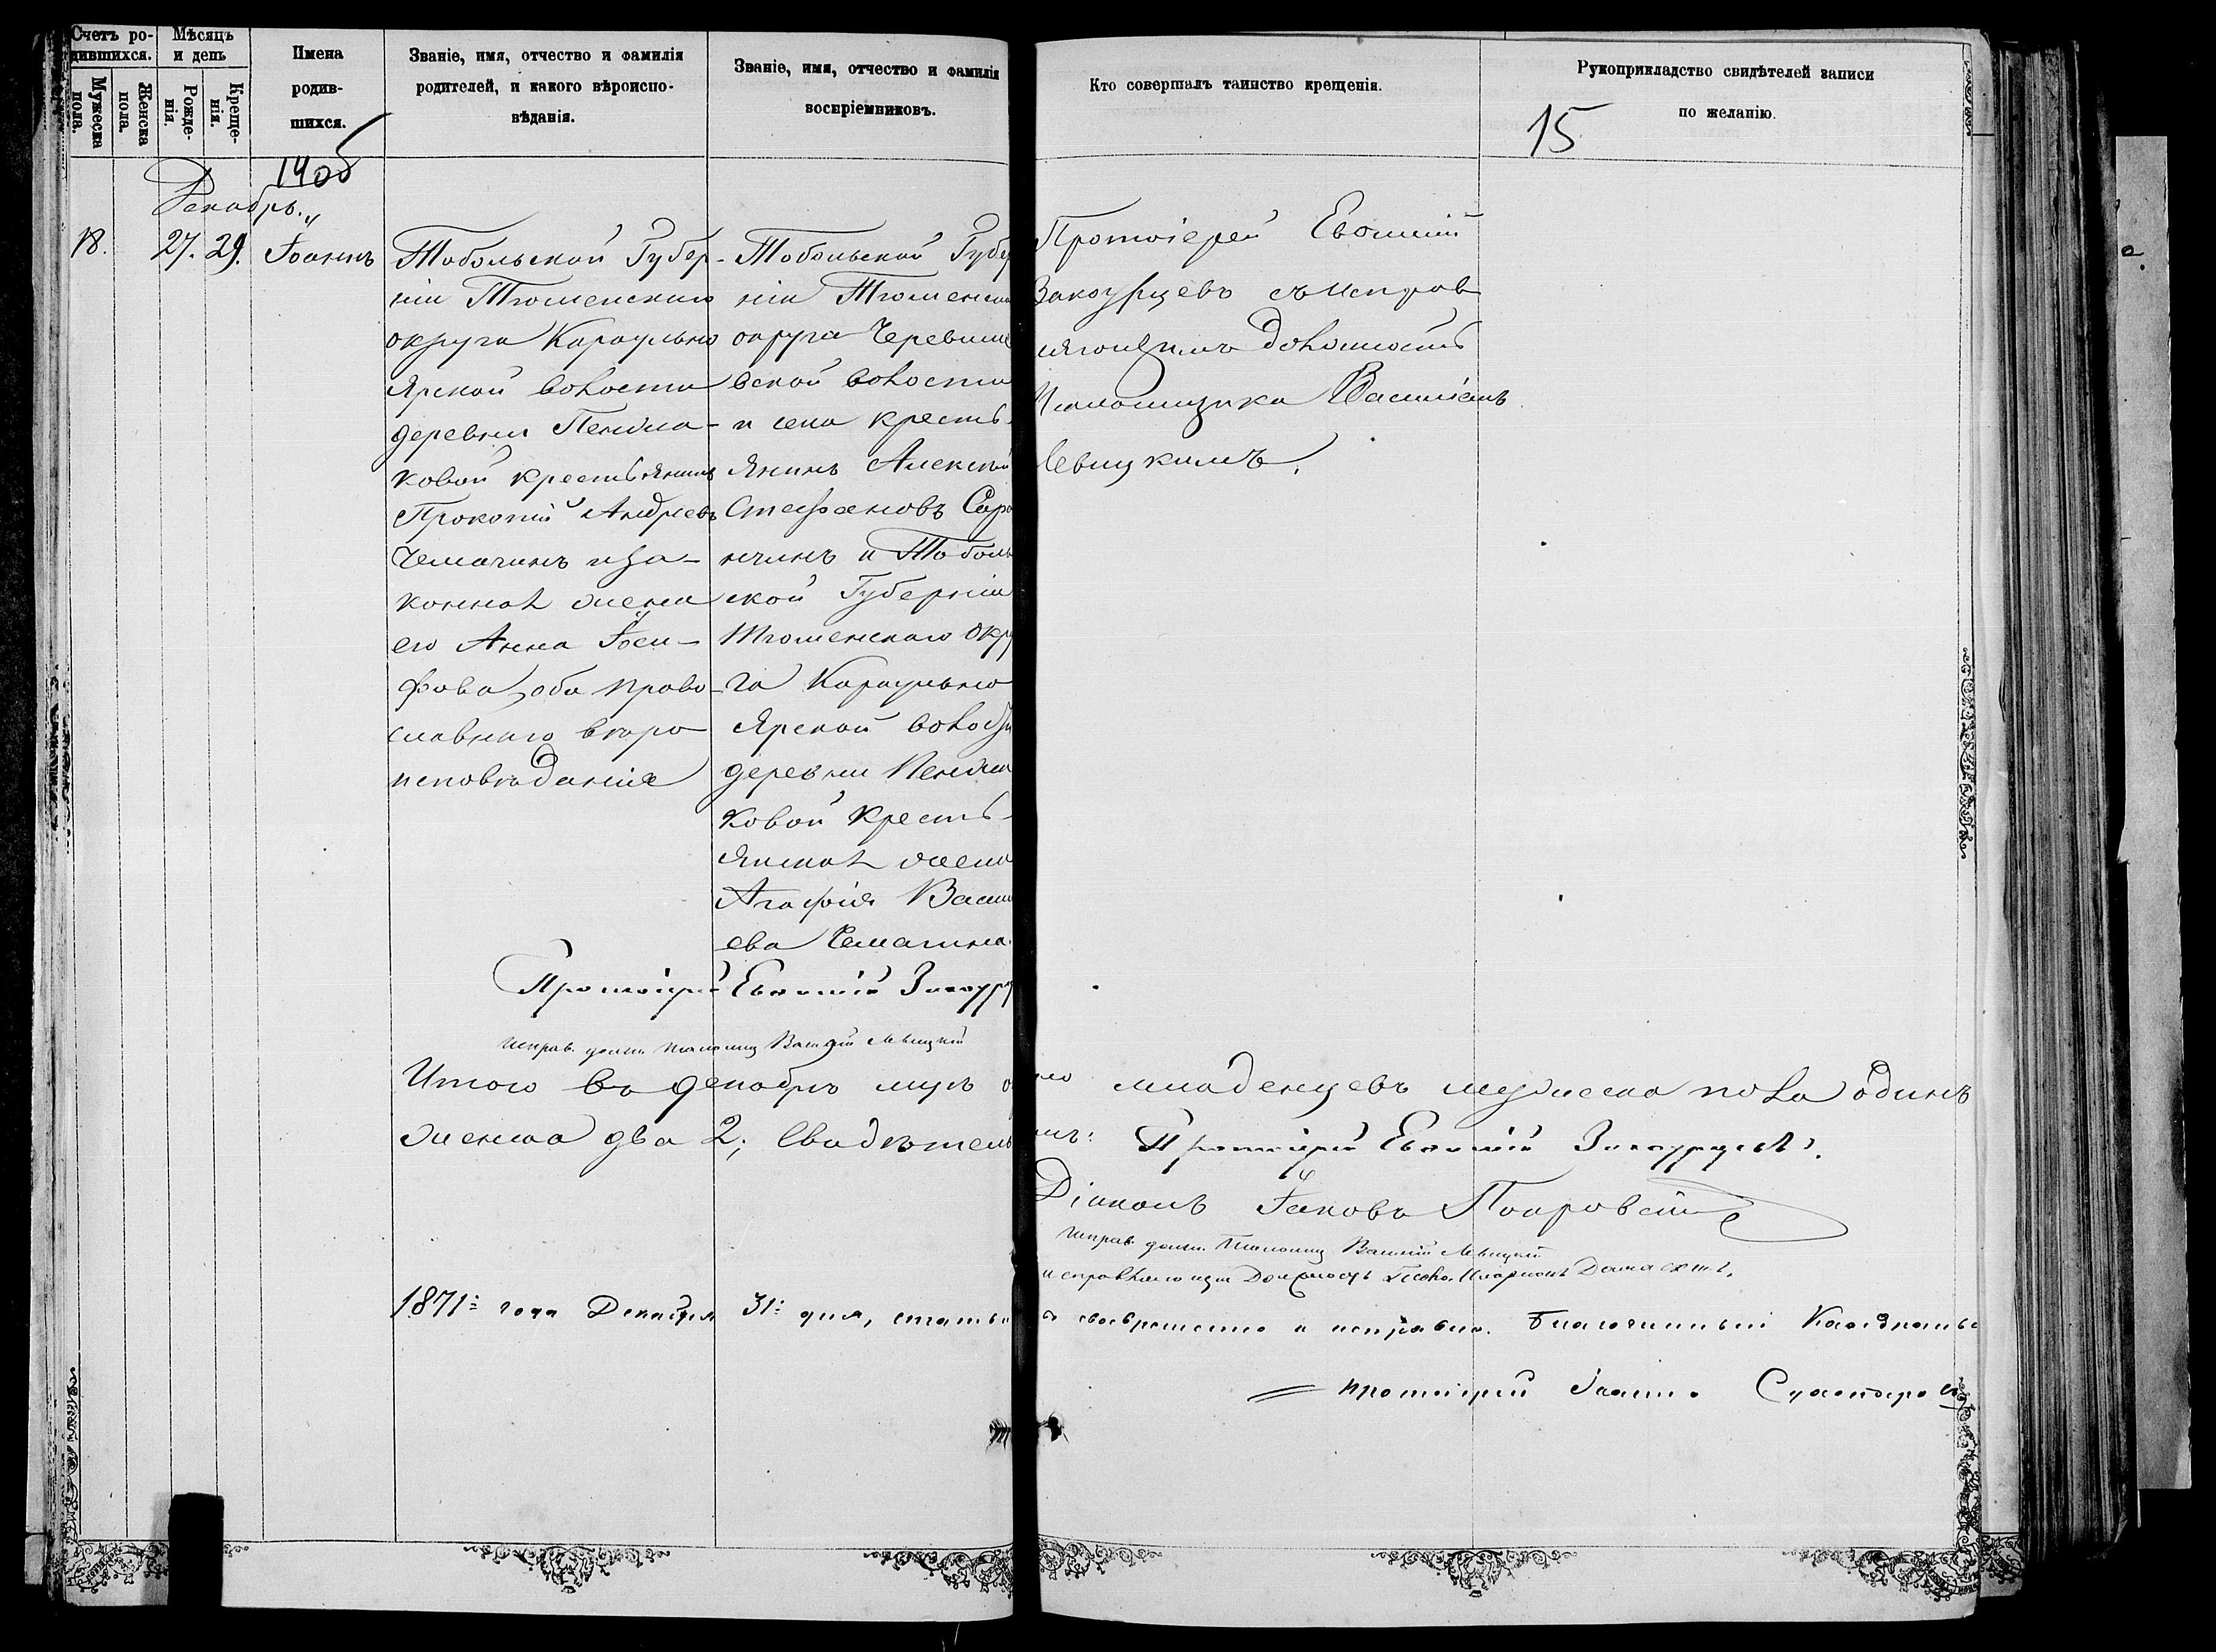 Счетъ ро-
дившихся.
Мужеска пола.
Женска пола.
Мѣсяцъ
и день
Рожде-
нія.
Креще-
нія.
Имена
родив-
шихся.
Званіе, имя, отчество и фамилія
родителей, и какого вѣроиспо-
вѣданія.
Званіе, имя, отчество и фамилія
воспріемниковъ.
Кто совершалъ таинство крещенія.
Рукоприкладство свидѣтелей записи
по желанію.
14об
15
Декабрь.
18.
27.
29.
Іоаннъ
Тобольской Губер-
ніи Тюменскаго
округа Караульно
Ярской волости
деревни
ковой крестьянинъ
Прокопій Андреевъ
Чемагинъ и за-
конная жена
его Анна Іоси-
фова, оба право-
славнаго вѣро
исповѣданія
Тобольской Губер
ніи Тюменска
округа Черевише
вской волости
и села кресть-
янинъ Алексѣй
Стефановъ
и Тоболь
ской Губерніи
Тюменскаго окру
га Караульно
Ярской волости
деревни
ковой кресть-
янская жена
Агафія Васил
ева Чемагина.
Протоіерей Евѳимій
Закоурцевъ съ исправ
ляющимъ должность
Псаломщика Василіемъ
Левицкимъ.
Протоіерей Евѳимій Закоур
исправ. должн. псаломщ Василій Левицкій
Итого въ декабрѣ муж о
но младенцевъ мужеска пола одинъ
женска два 2; Свидѣтель
мъ: Протоіерей Евѳимій Закоурцевъ.
Діаконъ Іаковъ Покровскій
исправ. должн. Псаломщ Василій Левицкій
исправляющій Должность Псало. Иларіонъ
1871: года Декабря 31: дня, статьи
своевременно и исправно. Благочинный
протоіерей Іоаннъ